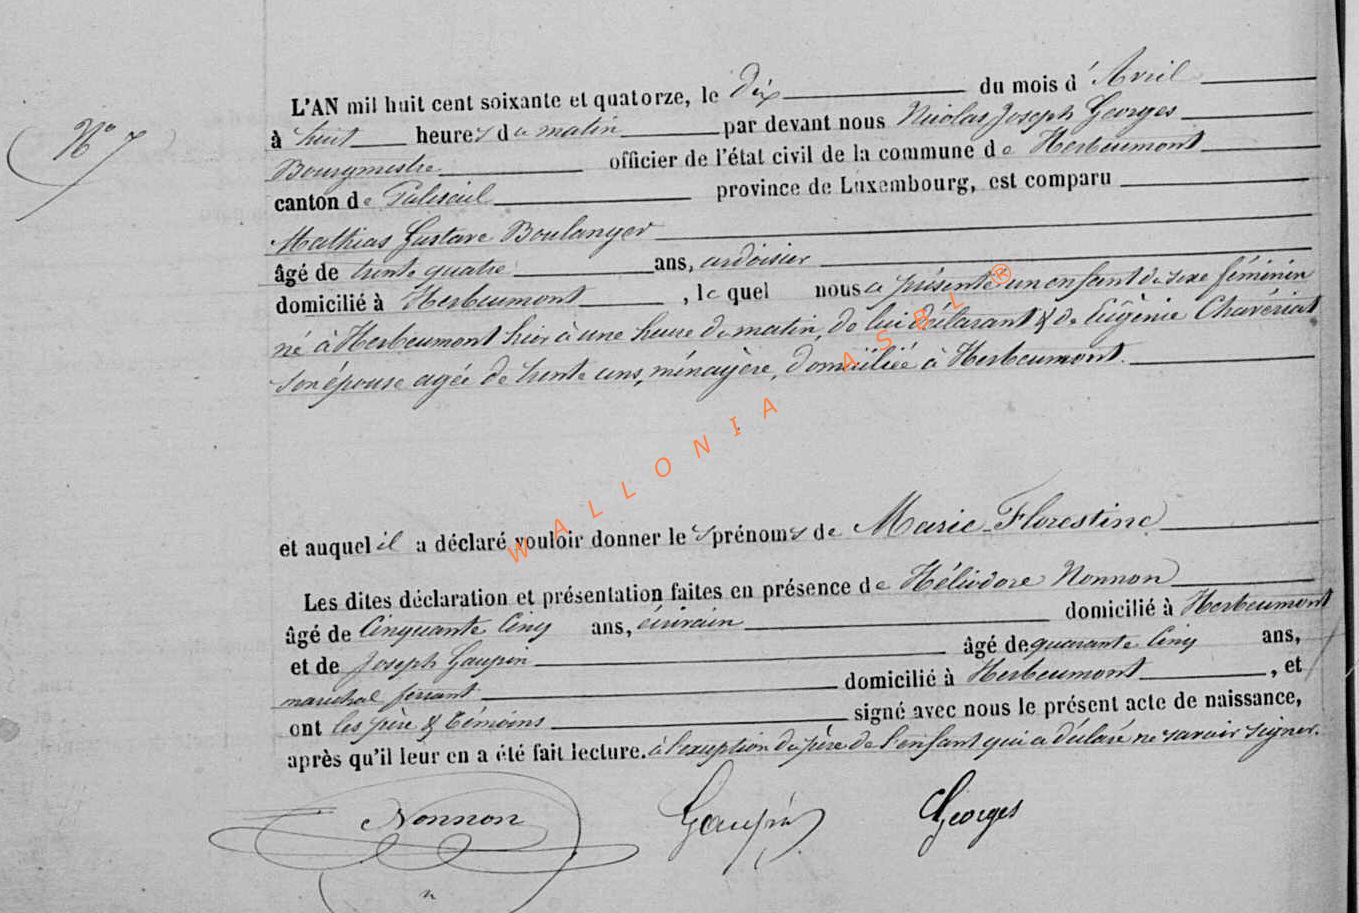 N° 7
L'AN mil huit cent soixante et quatorze, le dix du mois d'Avril
à huit heures du matin par devant nous Nicolas Joseph Georges
Bourgmestre officier de l'état civil de la commune de Herbeumont
canton de Paliseul province de Luxembourg, est comparu
Mathias Gustave Boulanger
âgé de trente quatre ans, ardoisier
domicilié à Herbeumont, le quel nous a présenté un enfant de sexe féminin
né à Herbeumont hier à une heure du matin, de lui déclarant & de Eugènie Chavériat
son épouse agée de trente ans, ménagère, domiciliée à Herbeumont.
et auquel il a déclaré vouloir donner le s prénoms de Marie Florestine
Les dites déclaration et présentation faites en présence de Héliodore Nonnon
âgé de Cinquante Cinq ans, écrivain domicilié à Herbeumont
et de Joseph Gaupin âgé de quarante Cinq ans,
maréchal ferrant domicilié à Herbeumont, et
ont les père & témoins signé avec nous le présent acte de naissance,
après qu'il leur en a été fait lecture. à l'exception du père de l'enfant qui a déclaré ne savoir signer.
Nonnon Gaupin Georges
WALLONIA ASBL ®